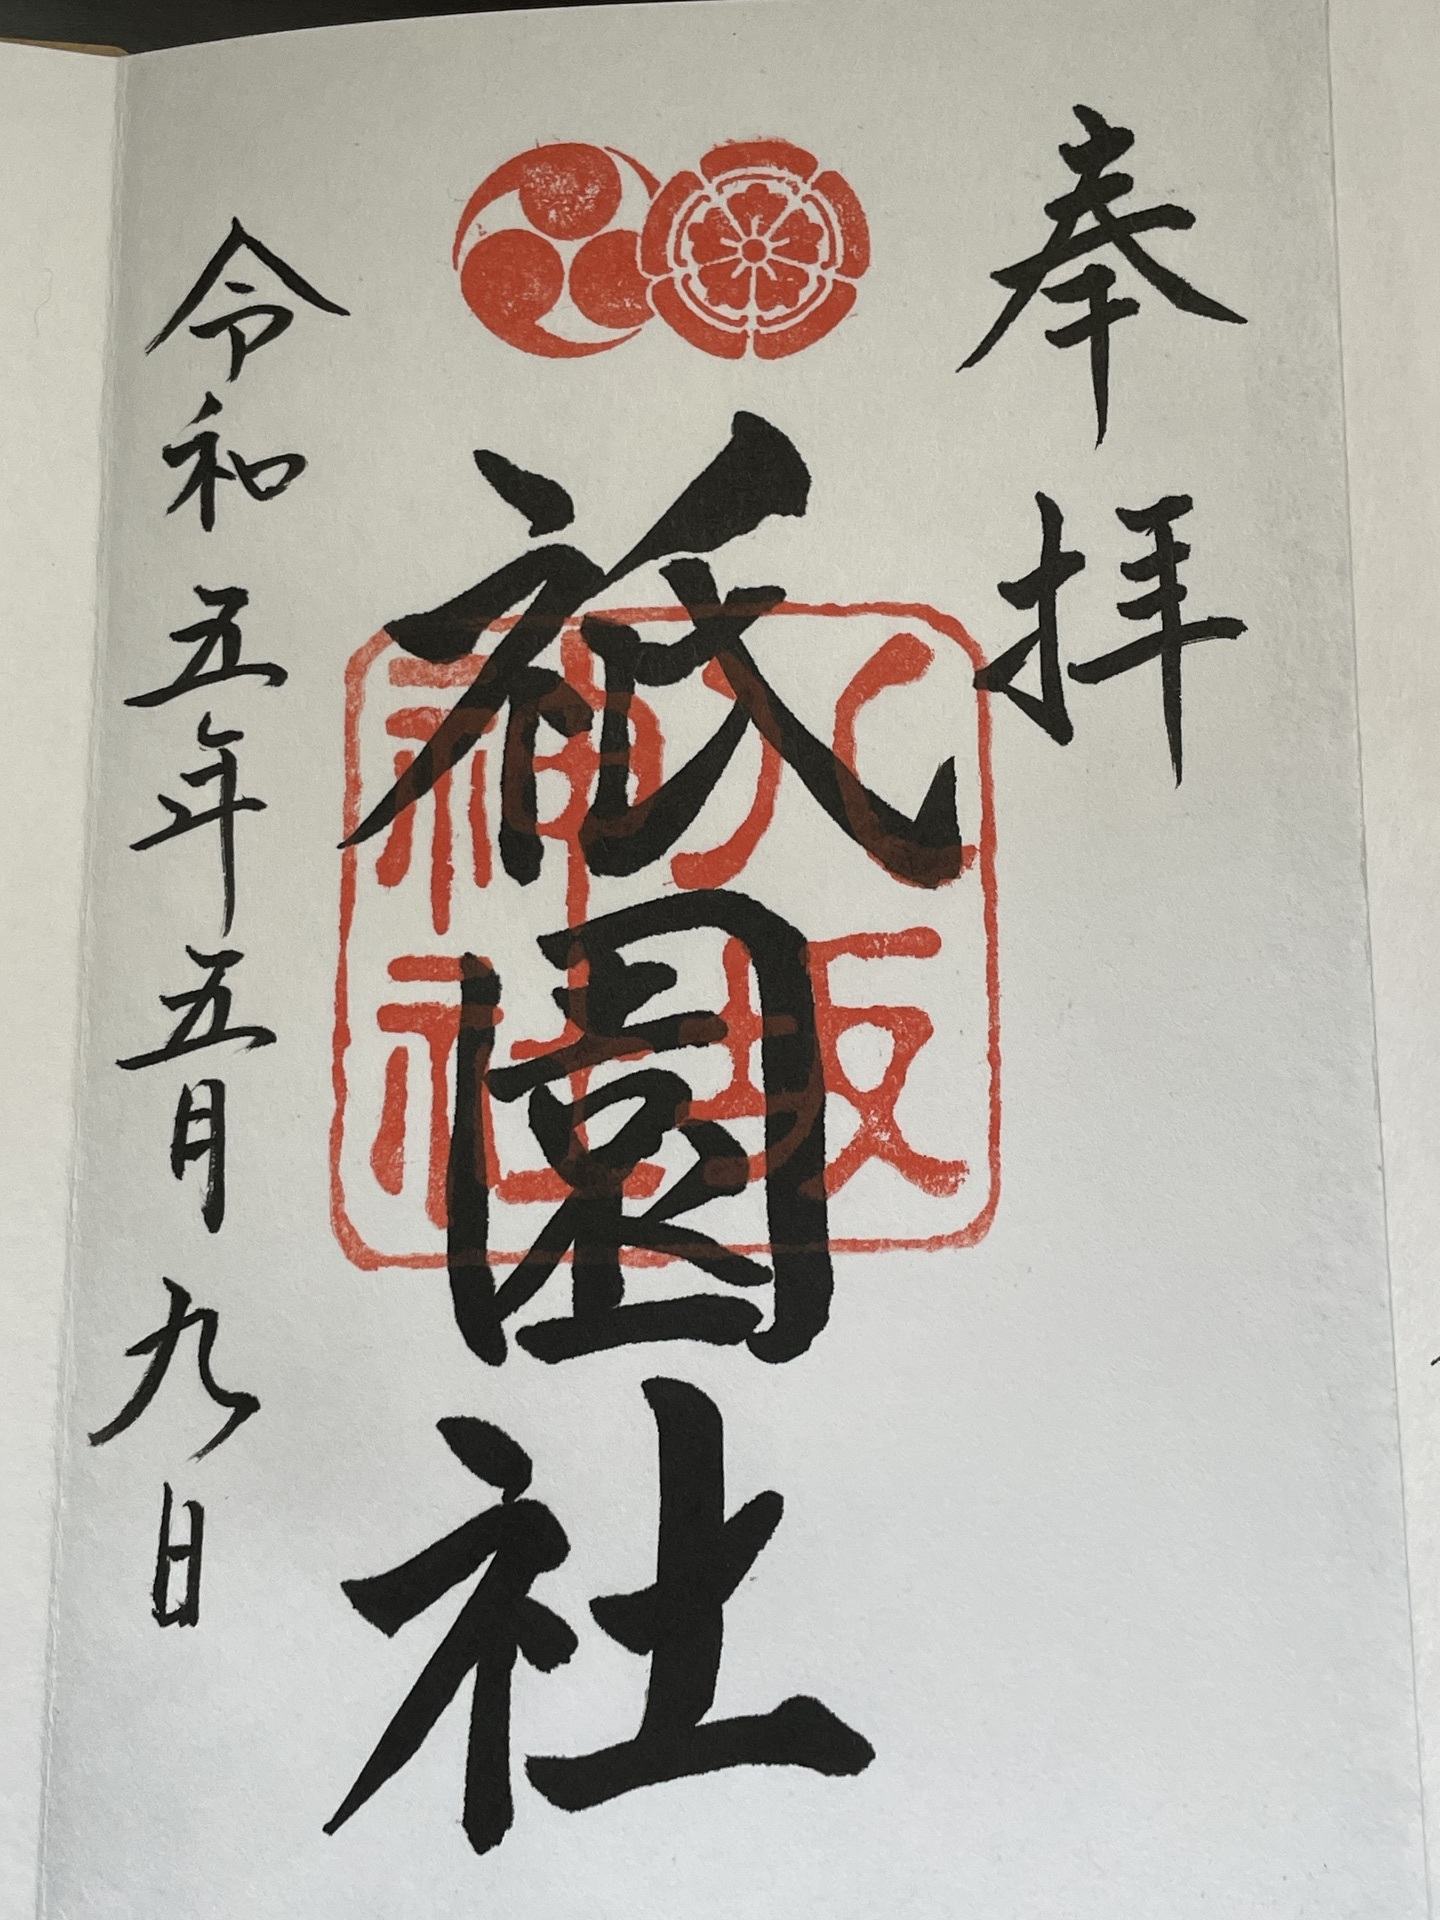 奉拝
祇園社
八坂
神社
令和五年五月九日